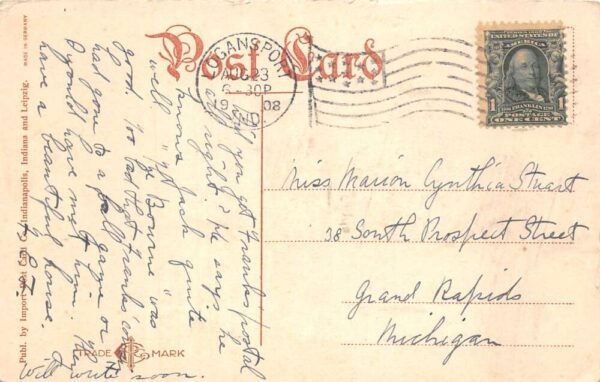 Post Card
LOGANSPORT
AUG 23
6-30P
1908
IND.
SERIES 1902
UNITED STATES
OF AMERICA
1 FRANKLIN 1
POSTAGE
ONE CENT
Miss Marion Cynthia Stuart
38 South Prospect Street
Grand Rapids
Michigan
Did you get Franks postal
all right? He says he
knows Jack quite
well. "The Bourne" was
good. Too bad that Frank's
had gone to a ball game or
I would have met him. They
have a beautiful house.
Will write soon.
TRADE MARK
Publ. by Import Post Card Co., Indianapolis, Indiana and Leipzig.
MADE IN GERMANY